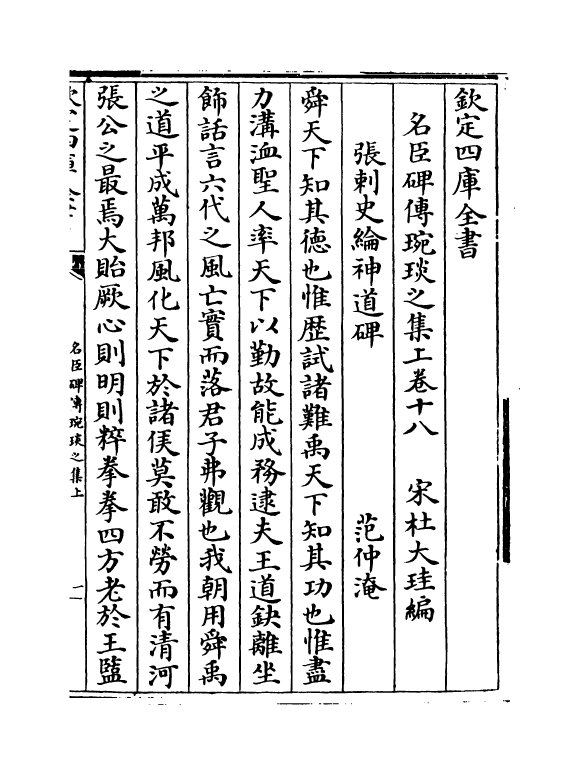 欽定四庫全書
名臣碑傳琬琰之集上卷十八　宋杜大珪編
張刺史綸神道碑　范仲淹
舜天下知其德也惟歴試諸難禹天下知其功也惟盡
力溝洫聖人率天下以勤故能成務逮夫王道缺離坐
飾話言六代之風亡實而落君子弗觀也我朝用舜禹
之道平成萬邦風化天下於諸侯莫敢不勞而有清河
張公之最焉大貽厥心則明則粹拳拳四方老於王盬
名臣碑傳琬琰之集上
一